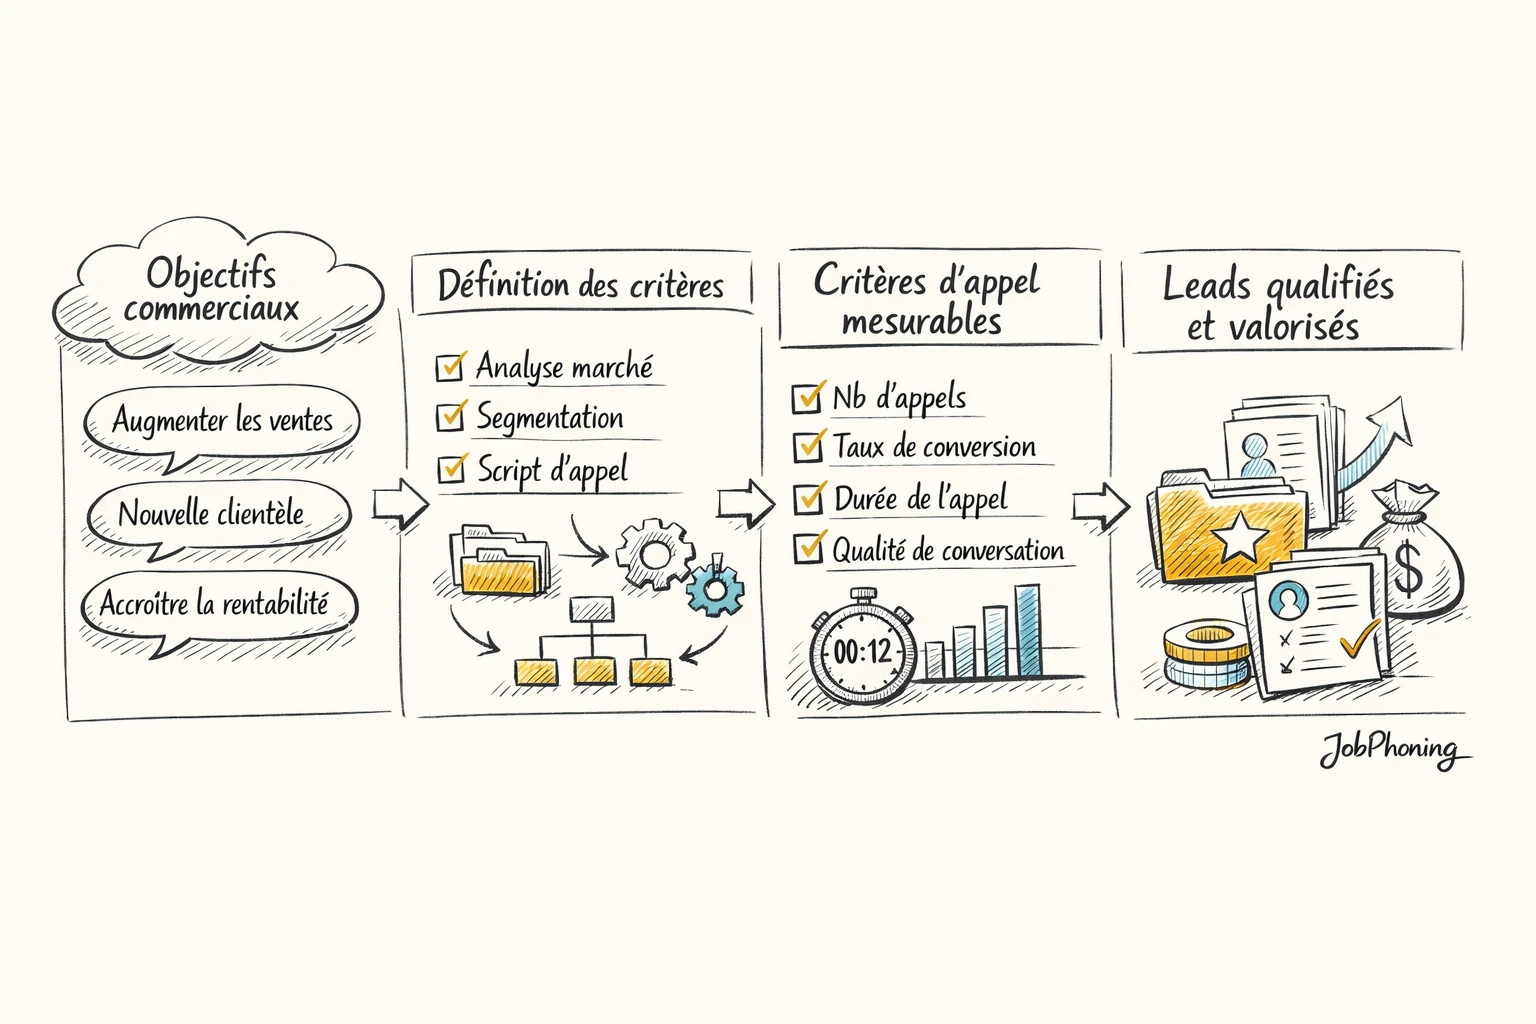 Objectifs
commerciaux
Augmenter les ventes
Nouvelle clientèle
Accroître la rentabilité
Définition des critères
Analyse marché
Segmentation
Script d'appel
Critères d'appel
mesurables
Nb d'appels
Taux de conversion
Durée de l'appel
Qualité de conversation
00:12
Leads qualifiés
et valorisés
$
JobPhoning